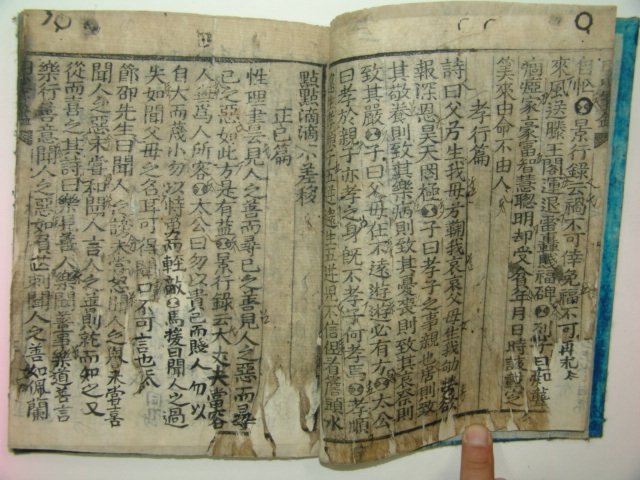 自忙 景行錄云禍不可倖免福不可再求
來風送滕王閣運退雷轟薦福碑 列子曰痴聾
痼瘂家豪富智慧聰明却受貧年月日時該載定
筭來由命不由人
孝行篇
詩曰父兮生我母兮鞠我哀哀父母生我劬勞欲
報深恩昊天罔極 子曰孝子之事親也居則致
其敬養則致其樂病則致其憂喪則致其哀祭則
致其嚴 子曰父母在不遠遊遊必有方 太公
曰孝於親子亦孝之身既不孝子何孝焉 孝順
還 順子五逆還生五逆兒不信但看簷頭水
點點滴滴不差移
正己篇
性理書云見人之善而尋己之善見人之惡而尋
己之惡如此方是有益 景行錄云大丈夫當容
人無爲人所容 太公曰勿以貴己而賤人勿以
自大而蔑小勿以恃勇而輕敵 馬援曰聞人之過
失如聞父母之名耳可得聞口不可言也 康
節邵先生曰聞人之謗未嘗怒聞人之譽未嘗喜
聞人之惡未嘗和聞人言人之善則就而和之又
從而喜之其詩曰樂見善人樂聞善事樂道善言
樂行善意聞人之惡如負芒刺聞人之善如佩蘭